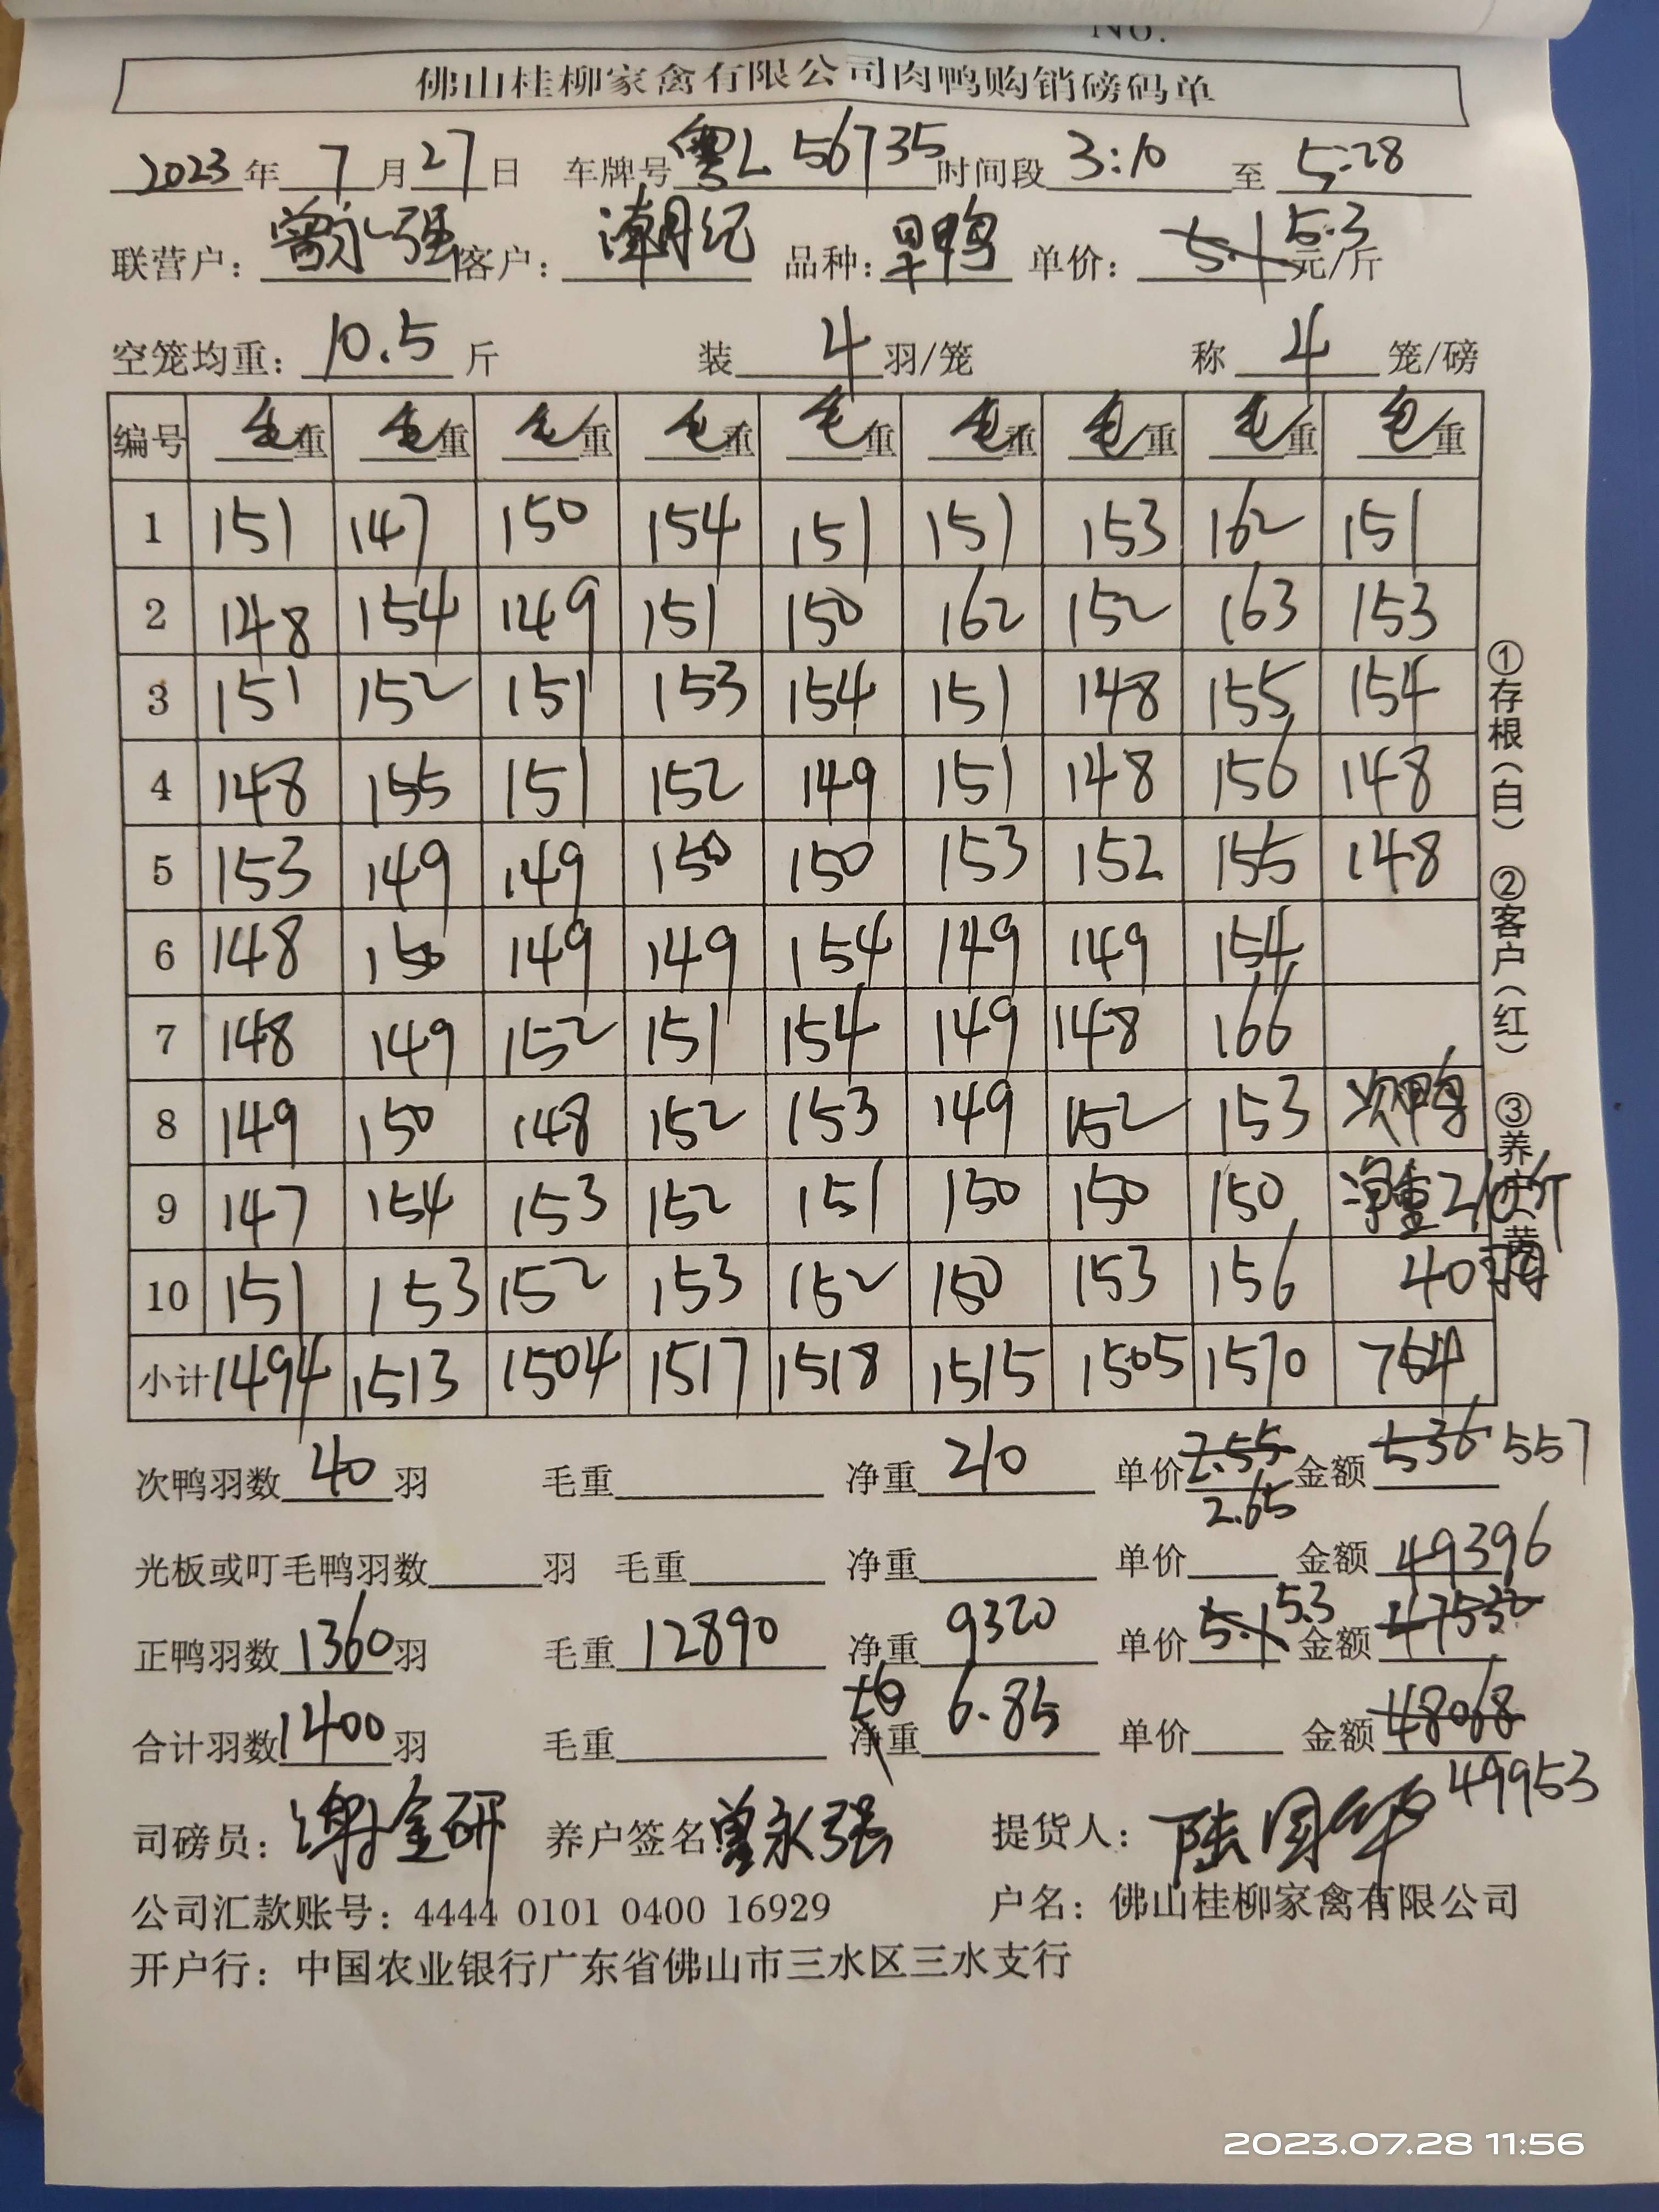 No.
佛山桂柳家禽有限公司肉鸭购销磅码单
2023年 7月27日 车牌号 粤L 56735 时间段 3:10 至 5:28
联营户:曾永强 客户:潮记 品种:旱鸭 单价:5.1 5.3 元/斤
空笼均重:10.5斤 装 4 羽/笼 称 4 笼/磅
编号 毛重 毛重 毛重 毛重 毛重 毛重 毛重 毛重 毛重
1 151 147 150 154 151 151 153 162 151
2 148 154 149 151 150 162 152 163 153
3 151 152 151 153 154 151 148 155 154
4 148 155 151 152 149 151 148 156 148
5 153 149 149 150 150 153 152 155 148
6 148 150 149 149 154 149 149 154
7 148 149 152 151 154 149 148 166
8 149 150 148 152 153 149 152 153 次鸭
9 147 154 153 152 151 150 150 150 净重210斤
10 151 153 152 153 152 150 153 156 40羽
小计 1494 1513 1504 1517 1518 1515 1505 1570 754
①存根(白) ②客户(红) ③养户(黄)
次鸭羽数40羽 毛重 净重210 单价2.55 2.65 金额536 557
光板或叮毛鸭羽数 羽 毛重 净重 单价 金额49396
正鸭羽数1360羽 毛重12890 净重9320 单价5.1 5.3 金额47532
合计羽数1400羽 毛重 净重 均 6.85 单价 金额48068
49953
司磅员:谢金研 养户签名:曾永强 提货人:陆国华
公司汇款账号:4444 0101 0400 16929 户名:佛山桂柳家禽有限公司
开户行:中国农业银行广东省佛山市三水区三水支行
2023.07.28 11:56